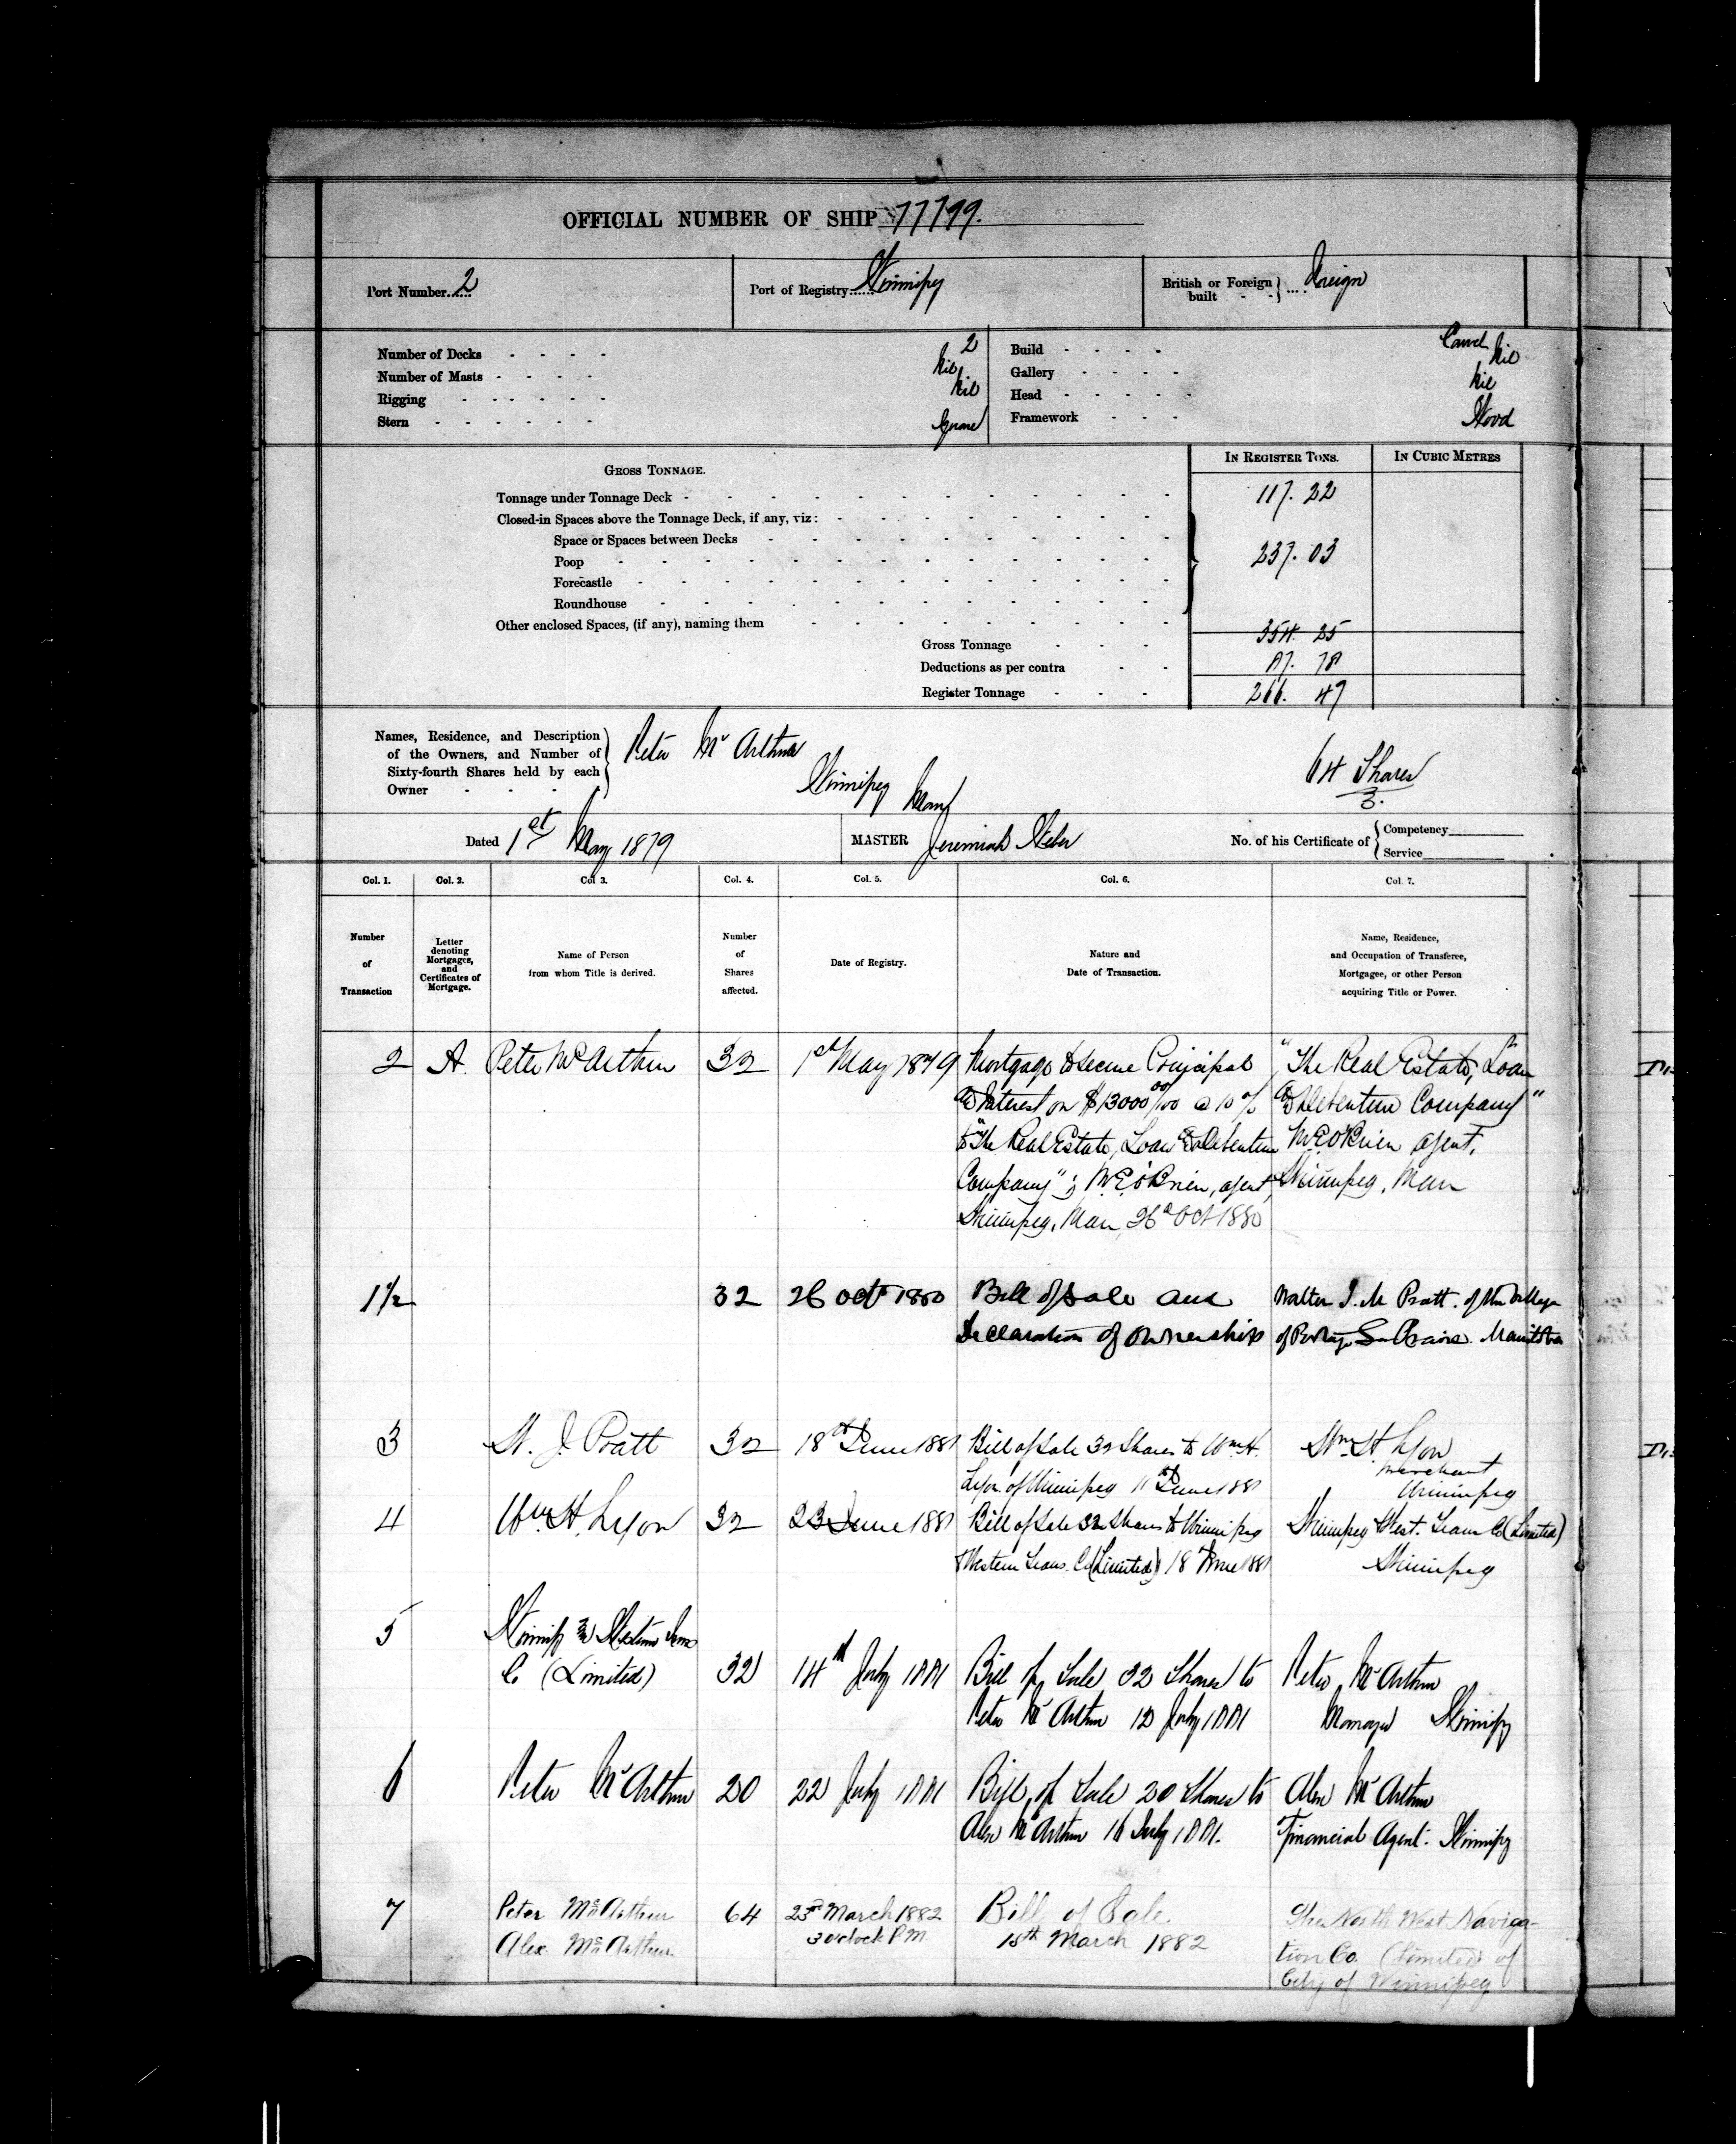 OFFICIAL NUMBER OF SHIP 77799.
Port Number...... 2
Port of Registry...... Winnipeg
British or Foreign built - - } .... Foreign
Number of Decks - - - - 2
Number of Masts - - - - Nil
Rigging - - - - - - Nil
Stern - - - - - - Square
Build - - - - Carvel
Gallery - - - - Nil
Head - - - - - Nil
Framework - - - Wood
IN REGISTER TONS. IN CUBIC METRES
GROSS TONNAGE.
Tonnage under Tonnage Deck - 117. 22
Closed-in Spaces above the Tonnage Deck, if any, viz:
Space or Spaces between Decks
Poop 237. 03
Forecastle
Roundhouse
Other enclosed Spaces, (if any), naming them
Gross Tonnage - - - 354. 25
Deductions as per contra - - 87. 78
Register Tonnage - - - 266. 47
Names, Residence, and Description
of the Owners, and Number of
Sixty-fourth Shares held by each
Owner - - - -
Peter McArthur
Winnipeg Man
64 Shares
Dated 1st May 1879
MASTER Jeremiah Weber
No. of his Certificate of { Competency
Service
Col. 1. Col. 2. Col 3. Col. 4. Col. 5. Col. 6. Col. 7.
Number of Transaction
Letter denoting Mortgages, and Certificates of Mortgage.
Name of Person from whom Title is derived.
Number of Shares affected.
Date of Registry.
Nature and Date of Transaction.
Name, Residence, and Occupation of Transferee, Mortgagee, or other Person acquiring Title or Power.
2 A. Peter McArthur 32 1st May 1879 Mortgage to secure Principal "The Real Estate, Loan
& Interest on $13000 00/100 @ 10% & Debenture Company"
to "The Real Estate, Loan & Debenture W.E. O'Brien agent,
Company"; W.E. O'Brien, agent, Winnipeg, Man
Winnipeg, Man, 26th Oct 1880
1½ 32 26 Oct 1880 Bill of Sale and Walter J. M Pratt. of the Village
Declaration of Ownership of Portage La Prairie. Manitoba
3 W. J. Pratt 32 18th June 1881 Bill of Sale 32 Shares to Wm H. Wm H. Lyon
Lyon of Winnipeg 11th June 1881 merchant
Winnipeg
4 Wm H. Lyon 32 23 June 1881 Bill of Sale 32 Shares to Winnipeg Winnipeg & West. Trans Co (Limited)
& Western Trans. Co (Limited) 18th June 1881 Winnipeg
5 Winnipeg & Western Trans
Co (Limited) 32 14th July 1881 Bill of Sale 32 Shares to Peter McArthur
Peter McArthur 12 July 1881 Manager Winnipeg
6 Peter McArthur 20 22 July 1881 Bill of Sale 20 Shares to Alex McArthur
Alex McArthur 16 July 1881. Financial Agent. Winnipeg
7 Peter McArthur 64 23rd March 1882 Bill of Sale. The North West Naviga-
Alex. McArthur 3 o'clock P.M. 15th March 1882 tion Co. (Limited) of
City of Winnipeg